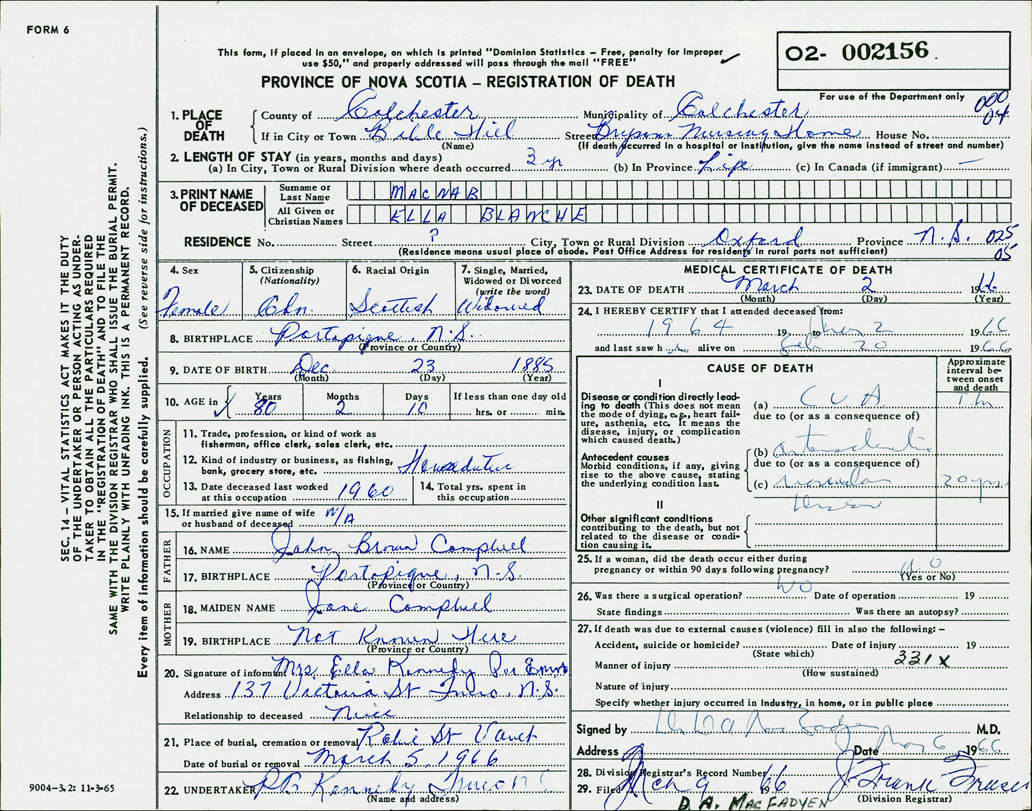 FORM 6
This form, if placed in an envelope, on which is printed "Dominion Statistics – Free, penalty for improper
use $50," and properly addressed will pass through the mail "FREE"
O2- 002156
PROVINCE OF NOVA SCOTIA – REGISTRATION OF DEATH
For use of the Department only
000
04
1. PLACE OF DEATH
County of Colchester Municipality of Colchester
If in City or Town Bible Hill Street Brysons Nursing Home House No.
(Name) (If death occurred in a hospital or institution, give the name instead of street and number)
2. LENGTH OF STAY (in years, months and days)
(a) In City, Town or Rural Division where death occurred 3 yr (b) In Province Life (c) In Canada (if immigrant) —
3. PRINT NAME OF DECEASED
Surname or Last Name MACNAB
All Given or Christian Names ELLA BLANCHE
RESIDENCE No. Street ? City, Town or Rural Division Oxford Province N.S. 025
05
(Residence means usual place of abode. Post Office Address for residents in rural parts not sufficient)
4. Sex
Female
5. Citizenship
(Nationality)
Cdn.
6. Racial Origin
Scottish
7. Single, Married,
Widowed or Divorced
(write the word)
Widowed
8. BIRTHPLACE Portapique, N.S.
(Province or Country)
9. DATE OF BIRTH Dec 23 1885
(Month) (Day) (Year)
10. AGE in Years Months Days If less than one day old
80 2 10 hrs. or min.
OCCUPATION
11. Trade, profession, or kind of work as
fisherman, office clerk, sales clerk, etc.
12. Kind of industry or business, as fishing,
bank, grocery store, etc. Housedutie
13. Date deceased last worked
at this occupation 1960
14. Total yrs. spent in
this occupation
15. If married give name of wife
or husband of deceased N/A
FATHER
16. NAME John Brown Campbell
17. BIRTHPLACE Portapique, N.S.
(Province or Country)
MOTHER
18. MAIDEN NAME Jane Campbell
19. BIRTHPLACE Not Known Here
(Province or Country)
20. Signature of informant Mrs. Ella Kennedy Per
Address 137 Victoria St Truro, N.S.
Relationship to deceased Niece
21. Place of burial, cremation or removal Robie St Vault
Date of burial or removal March 5, 1966
22. UNDERTAKER Kennedy Truro N S
(Name and address)
MEDICAL CERTIFICATE OF DEATH
23. DATE OF DEATH March 2 1966
(Month) (Day) (Year)
24. I HEREBY CERTIFY that I attended deceased from:
1964 19 to Mar 2 1966
and last saw her alive on Feb 20 1966
CAUSE OF DEATH
Approximate
interval be-
tween onset
and death
I
Disease or condition directly lead-
ing to death (This does not mean
the mode of dying, e.g., heart fail-
ure, asthenia, etc. It means the
disease, injury, or complication
which caused death.)
(a) CVA
due to (or as a consequence of)
Antecedent causes
Morbid conditions, if any, giving
rise to the above cause, stating
the underlying condition last.
(b)
due to (or as a consequence of)
(c) vascular 20 yrs.
II
Other significant conditions
contributing to the death, but not
related to the disease or condi-
tion causing it.
25. If a woman, did the death occur either during
pregnancy or within 90 days following pregnancy? No
(Yes or No)
26. Was there a surgical operation? No Date of operation 19
State findings Was there an autopsy?
27. If death was due to external causes (violence) fill in also the following: –
Accident, suicide or homicide? Date of injury 19
(State which) 331X
Manner of injury
(How sustained)
Nature of injury
Specify whether injury occurred in Industry, in home, or in public place
Signed by M.D.
Address Date 1966
28. Division Registrar's Record Number
29. Filed Mch 9 1966 J. Frank Fraser
(Division Registrar)
D. A. MACFADYEN
9004-3.2: 11-3-65
SEC. 14 – VITAL STATISTICS ACT MAKES IT THE DUTY
OF THE UNDERTAKER OR PERSON ACTING AS UNDER-
TAKER TO OBTAIN ALL THE PARTICULARS REQUIRED
IN THE "REGISTRATION OF DEATH" AND TO FILE THE
SAME WITH THE DIVISION REGISTRAR WHO SHALL ISSUE THE BURIAL PERMIT.
WRITE PLAINLY WITH UNFADING INK. THIS IS A PERMANENT RECORD.
Every item of information should be carefully supplied. (See reverse side for instructions.)